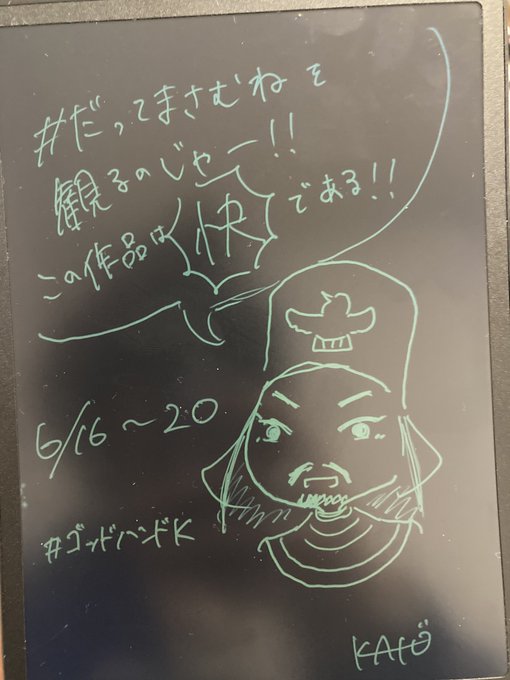 #だってまさむねを
観るのじゃー!!
この作品は快である!!
6/16〜20
#ゴッドハンドK